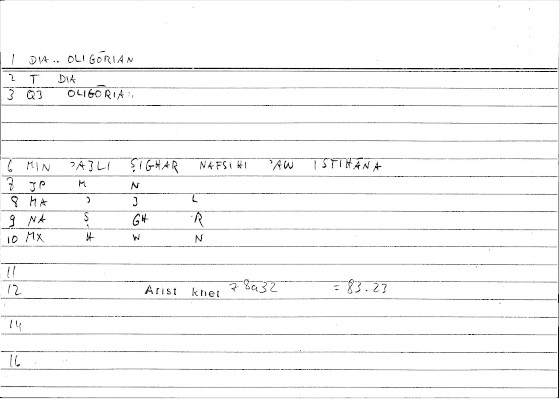 1 DIA.. OLIGŌRIAN
2 T DIA
3 Q3 OLIGŌRIA:.
6 MIN ʾAJLI ṢIGHAR NAFSIHI ʾAW ISTIHĀNA
7 JP M N
8 MA ʾ J L
9 NA Ṣ GH R
10 MX H W N
11
12 Arist rhet 78a32 = 83.23
14
16